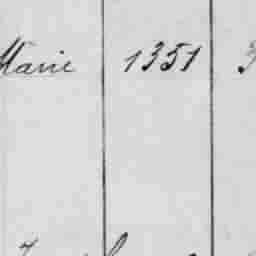 Marie 1351 3